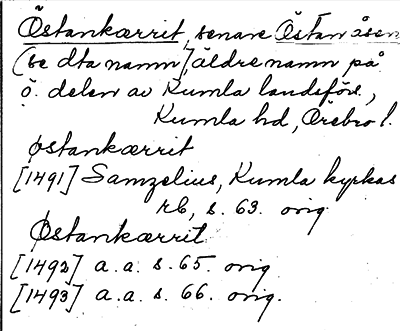 Östankærrit, senare Östanåsen
(se dta namn), äldre namn på
ö. delen av Kumla landsförs.,
Kumla hd, Örebro l.
østankærrit
[1491] Samzelius, Kumla kyrkas
rb, s. 63. orig
Østankærrit
[1492] a.a. s. 65. orig
[1493] a.a. s. 66. orig.